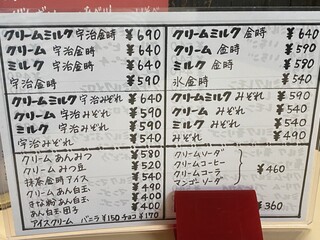 クリームミルク宇治金時 ¥690
クリーム 宇治金時 ¥640
ミルク 宇治金時 ¥640
宇治金時 ¥590
クリームミルク宇治みぞれ ¥640
クリーム 宇治みぞれ ¥590
ミルク 宇治みぞれ ¥590
宇治みぞれ ¥540
クリームあんみつ ¥580
クリームみつ豆 ¥520
抹茶金時アイス ¥540
クリームあん白玉 ¥490
きな粉あん白玉 ¥400
あん白玉団子 ¥400
アイスクリーム バニラ¥150 チョコ¥170
クリームミルク 金時 ¥640
クリーム 金時 ¥590
ミルク 金時 ¥580
氷金時 ¥540
クリームミルクみぞれ ¥590
クリーム みぞれ ¥540
ミルク みぞれ ¥540
みぞれ ¥490
クリームソーダ
クリームコーヒー
クリームコーラ
マンゴーソーダ
¥460
¥360